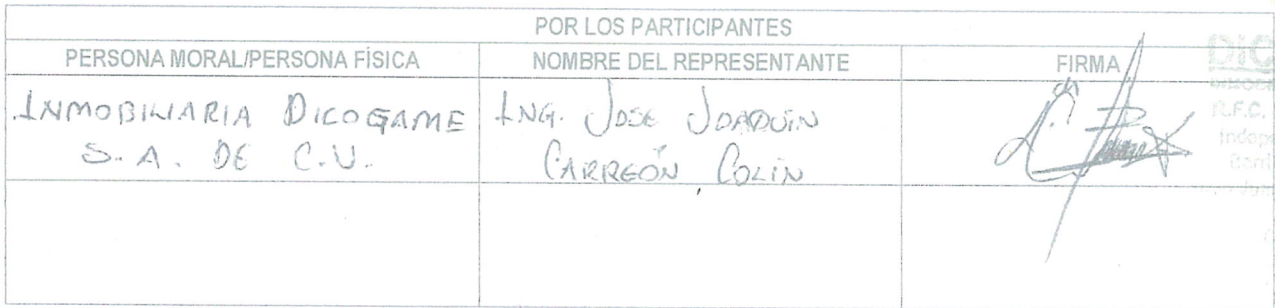 POR LOS PARTICIPANTES
PERSONA MORAL/PERSONA FÍSICA NOMBRE DEL REPRESENTANTE FIRMA
INMOBILIARIA DICOGAME ING. JOSE JOAQUÍN
S.A. DE C.V. CARREÓN COLÍN
DIC
R.F.C.